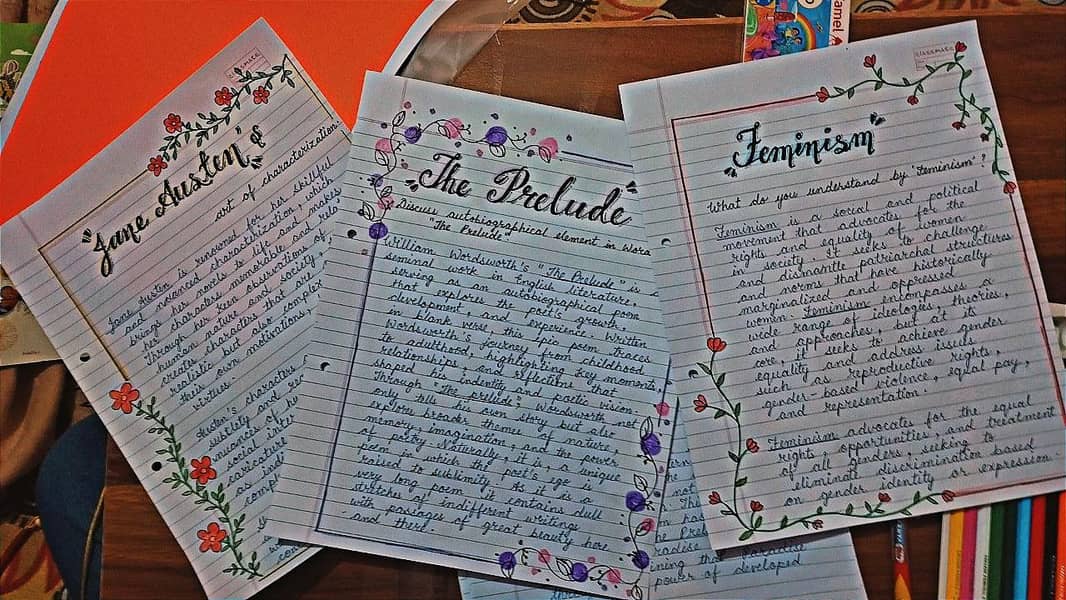 classmate
"Jane Austen"'s
art of characterization.
Jane Austen is renowned for her skillful
and nuanced characterization, which
brings her novels to life and makes
her characters memorable and
Through her keen observations of
human nature and society,
creates characters that are
realistic but also complex
their own motivations,
virtues.
Austen's characters
subtlety and
nuances of he
social inter
caricature
as
compl
"The Prelude"
Discuss autobiographical element in Word
"The Prelude"
William Wordsworth's "The Prelude" is a
seminal work in English literature,
serving as an autobiographical poem
that explores the poet's growth,
development, and experience. Written
in blank verse, this epic poem traces
Wordsworth's journey from childhood
to adulthood, highlighting key moments,
relationships, and reflections that
shaped his indentity and poetic vision.
Through "The prelude", Wordsworth not
only tells his own story but also
explore broader themes of nature,
memory, imagination, and the power
of poetry. Naturally, it is, a unique
poem in which the poet's ego is
raised to sublimity. As it is a
very long poem it contains dull
stretches of indifferent writings
with passages of great beauty here
and there.
ining that paradise
power of developed
classmate
"Feminism"
What do you understand by 'Feminism'?
Feminism is a social and political
movement that advocates for the
rights and equality of women
in society. It seeks to challenge
and dismantle patriarchal structures
and norms that have historically
marginalized and oppressed
women. Feminism encompasses a
wide range of ideologies, theories,
and approaches, but at its
core, it seeks to achieve gender
equality and address issues
such as reproductive rights,
gender-based violence, equal pay,
and representation.
Feminism advocates for the equal
rights, opportunities, and treatment
of all genders, seeking to
eliminate discrimination based
on gender identity or expression.
camel